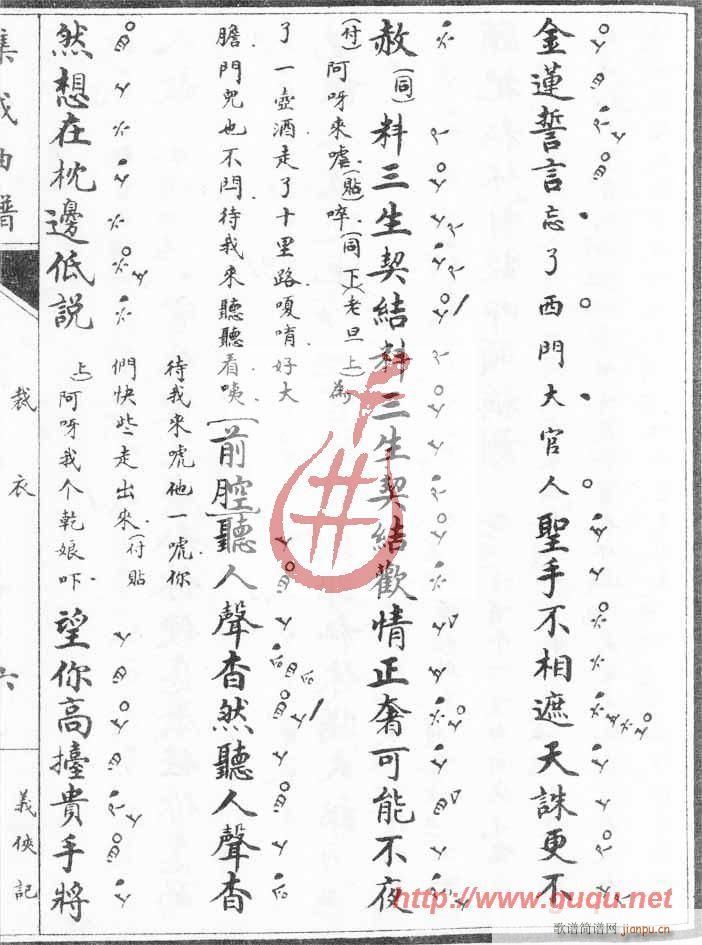 金蓮誓言忘了西門大官人聖手不相遮天誅更不
赦(同)料三生契結料三生契結歡情正奢可能不夜
(付)阿呀來嘘(貼)啐(同下)(老旦上)為
了一壺酒走了十里路嗄唷好大
膽門兒也不閂待我來聽聽看咦(前腔)聽人聲杳然聽人聲杳
待我來唬他一唬你
們快些走出來(付貼
上)阿呀我个乾娘吓
然想在枕邊低説望你高擡貴手將
集成曲譜
裁衣
六
義俠記
http://www.guqu.net
歌谱简谱网 jianpu.cn